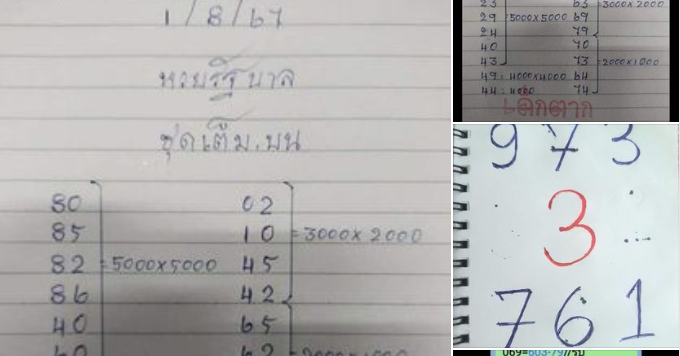 1/8/67
หวยรัฐบาล
ชุดเต็ม.บน
80 02
85 10 =3000x2000
82 =5000x5000 45
86 42
40 65
60 62
23 63 =3000x2000
29 5000x5000 69
24 79
40 70
43 73 =2000x1000
49:4000x4000 64
44:4000 74
973
3
761
069=603-79//รบ